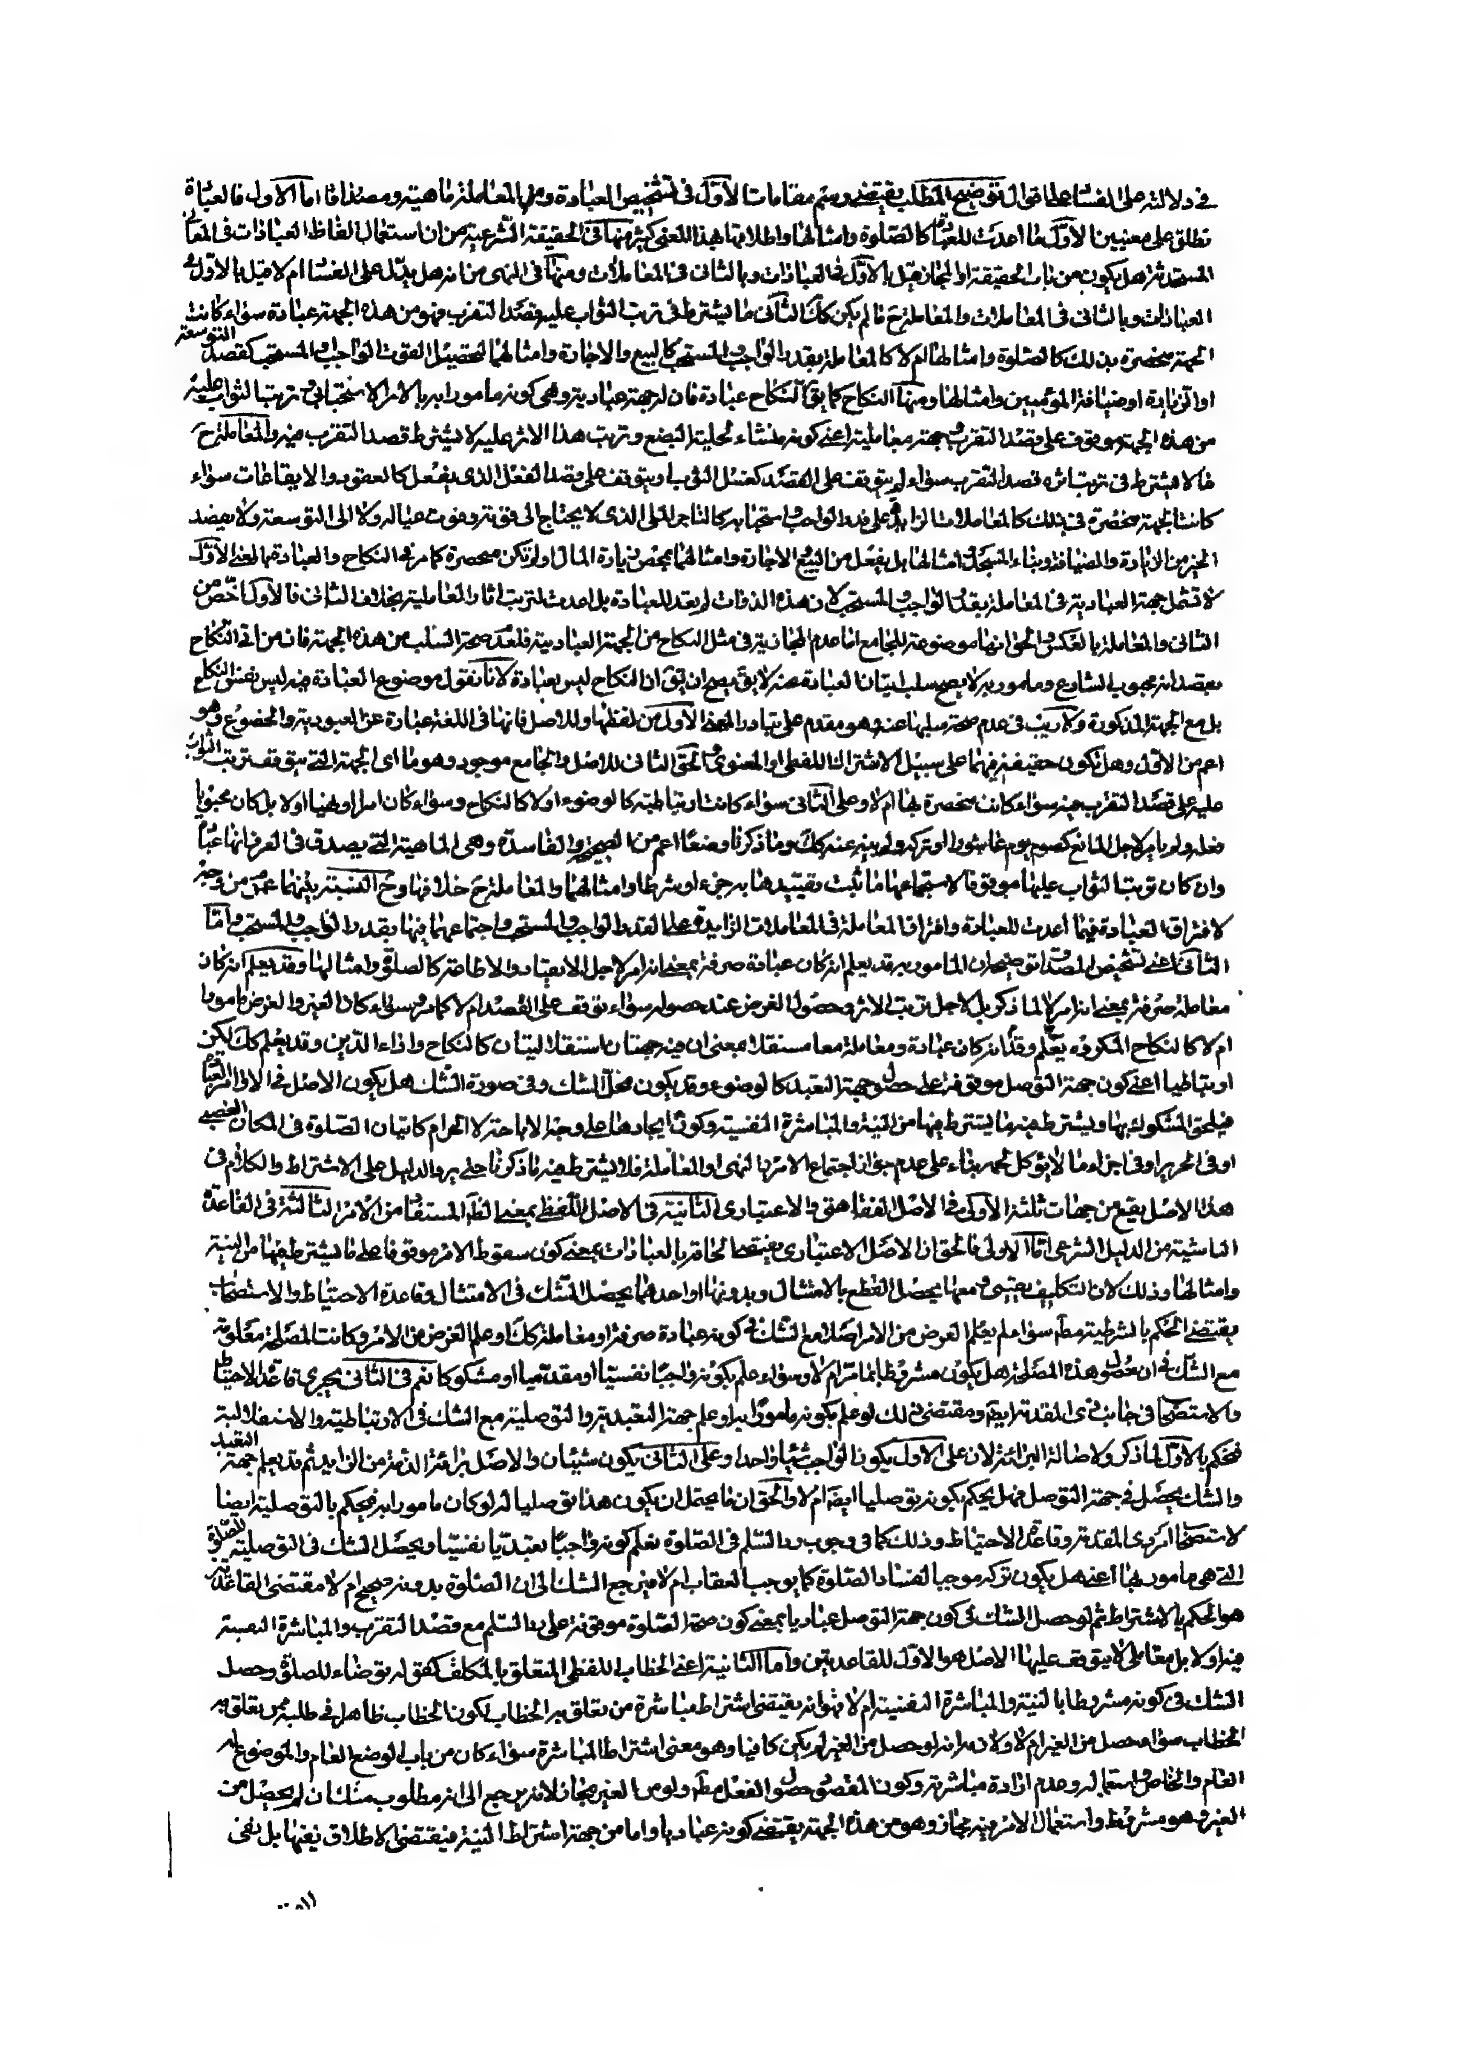 في دلالته على الفساد توضيح المطلب يقتضي رسم مقامات الأول في تشخيص العبادة والمعاملة ماهية ومصداقا اما الاول فالعبادة
تطلق على معنيين الأول ما اعدت للعبادة كالصلوة وامثالها واطلاقها بهذا المعنى كثير منها في الحقيقة الشرعية من ان استعمال الفاظ العبادات في المعاني
المستحدثة هل يكون من باب الحقيقة او المجاز قيل بالاول في العبادات وبالثاني في المعاملات ومنها في النهي من انه هل يدل على الفساد ام لا قيل بالاول في
العبادات وبالثاني في المعاملات والمعاملة ح ما لم يكن كك الثاني ما يشترط في ترتب الثواب عليه قصد التقرب فهو من هذه الجهة عبادة سواء كانت
الجهة منحصرة بذلك كالصلوة وامثالها ام لا كالمعاملة بقدر الواجب والمستحب كالبيع والاجارة وامثالهما لتحصيل القوت الواجب او المستحب كقصد التوسعة
او الزيادة او ضيافة المؤمنين وامثالها ومنها النكاح كما يق النكاح عبادة فان له جهة عبادية وهي كونه مامورا به بالامر الاستحبابي وترتب الثواب عليه
من هذه الجهة موقوف على قصد التقرب وجهة معاملية اعني كونه منشاء لحلية البضع وترتب هذا الاثر عليه لا يشترط قصد التقرب فيه والمعاملة ح
ما لا يشترط في ترتب اثره قصد التقرب سواء لم يتوقف على القصد كغسل الثوب او يتوقف على قصد الفعل الذي يفعل كالعقود والايقاعات سواء
كانت الجهة منحصرة في ذلك كالمعاملات الزايدة على قدر الواجب واستحبابه كالتاجر الملي الذي لا يحتاج الى قوته وقوت عياله ولا الى التوسعة ولا يقصد
الخير من الزيادة والضيافة وبناء المسجد وامثالها بل يفعل من البيع الاجارة وامثالهما بمحض زيادة المال او لم تكن منحصرة كما مر في النكاح والعبادة بالمعنى الاول
لا تشمل جهة العبادية في المعاملة بقدر الواجب والمستحب لان هذه الذوات لم يعد للعبادة بل اعدت لترتب اثار المعاملية بخلاف الثاني فالاول اخص من
الثاني والمعاملة بالعكس والحق انها موضوعة للجامع اما عدم المجازية في مثل النكاح من الجهة العبادية فلعدم صحة السلب من هذه الجهة فان من اتى النكاح
بقصد انه محبوب الشارع ومامور به لا يصح سلب اتيان العبادة عنه لا يق يصح ان يق ان النكاح ليس بعبادة لانا نقول موضوع العبادة فيه ليس نفس النكاح
بل مع الجهة المذكورة ولا ريب في عدم صحة سلبها عنه وهو مقدم على تبادر المعنى الاول من لفظها وللاصل فانها في اللغة عبارة عن العبودية والخضوع وهو
اعم من الاول وهل تكون حقيقة فيهما على سبيل الاشتراك اللفظي او المعنوي والحق الثاني للاصل والجامع موجود وهو ما اى الجهة التي يتوقف ترتب الثواب
عليه على قصد التقرب فيه سواء كانت منحصرة لها ام لا وعلى الثاني سواء كانت ارتباطية كالوضوء او لا كالنكاح وسواء كان امرا او نهيا او لا بل كان محبوبا
فعله ولو لم يامر لاجل المانع كصوم يوم عاشورا او تركه ولم ينه عنه كك وما ذكرنا وضعا اعم من الصحيحة والفاسدة وهي الماهية التي يصدق في العرف انها عبادة
وان كان ترتب الثواب عليها موقوفا لاستجماعها ما ثبت تقييدها به جزء او شرطا وامثالها والمعاملة ح خلافها وح النسبة بينهما عموم من وجه
لافتراق العبادة فيما اعدت للعبادة وافتراق المعاملة في المعاملات الزايدة على القدر الواجب والمستحب واجتماعهما فيها بقدر الواجب والمستحب واما
الثاني اعني تشخيص المصداق توضيحه ان المامور به قد يعلم انه كان عبادة صرفة بمعنى انه امر لاجل الانقياد والاطاعة كالصلوة وامثالها وقد يعلم انه كان
معاملة صرفة بمعنى انه امر لا لما ذكر بل لاجل ترتب الاثر وحصول الغرض عند حصوله سواء توقف على القصد ام لا كما مر وسواء كان الغير والغرض مامورا
ام لا كالنكاح المكروه وقد يعلم انه كان عبادة ومعاملة معا مستقلا بمعنى ان فيه جهتان استقلاليتان كالنكاح واداء الدين وقد يعلم كك لكن
ارتباطيا اعني كون جهة التوصل موقوفة على حصول جهة التعبد كالوضوء وقد يكون محل الشك وفي صورة الشك هل يكون الاصل في الاوامر التعبد
فيلحق المشكوك بها ويشترط فيه ما يشترط فيها من النية والمباشرة النفسية وكون ايجادها على وجه الاباحة لا الحرام كاتيان الصلوة في المكان الغصبي
او في الحرير او في اجزاء ما لا يؤكل لحمه بناء على عدم جواز اجتماع الامر بالنهي او المعاملة فلا يشترط فيه ما ذكرنا حتى يرد الدليل على الاشتراط والكلام في
هذا الاصل يقع من جهات ثلثة الاولى في الاصل الفقاهتي والاعتباري الثانية في الاصل اللفظي بمعنى الظاهر المستفاد من الامر الثالثة في القاعدة
الناشية من الدليل الشرعي اما الاولى فالحق ان الاصل الاعتباري يقتضي الحاقه بالعبادات بمعنى كون سقوط الامر موقوفا على ما يشترط فيها من النية
وامثالها وذلك لان التكليف يقيني ومعها يحصل القطع بالامتثال وبدونها او احدهما يحصل الشك في الامتثال وقاعدة الاحتياط والاستصحاب
يقتضي الحكم بالشرطية مطلقا سواء لم يعلم الغرض من الامر اصلا مع الشك في كونه عبادة صرفة او معاملة كك او علم الغرض من الامر وكانت المصلحة معلومة
مع الشك في ان حصول هذه المصلحة هل يكون مشروطا بما مر ام لا وسواء علم بكونه واجبا نفسيا او مقدميا او مشكوكا نعم في الثاني يجري قاعدة الاحتياط
والاستصحاب في جانب ذي المقدمة ايضا ومقتضى ذلك لو علم بكونه مامورا به او علم جهة التعبدية والتوصلية مع الشك في الارتباطية والاستقلالية
فيحكم بالاول لما ذكر ولاصالة البرائة لان على الاول يكون الواجب شيئا واحدا وعلى الثاني يكون شيئان والاصل برائة الذمة من الزايد ثم قد يعلم جهة التعبد
والشك يحصل في جهة التوصل فهل يحكم بكونه توصليا ايضا ام لا والحق ان ما يحتمل ان يكون هذا توصليا له لو كان مامورا به فيحكم بالتوصلية ايضا
لاستصحاب الامر ذي المقدمة وقاعدة الاحتياط وذلك كما في وجوب رد السلم في الصلوة نعلم كونه واجبا تعبديا نفسيا ويحصل الشك في التوصلية للصلوة
التي هي مامور بها اعني هل يكون تركه موجبا لفساد الصلوة كما يوجب العقاب ام لا فيرجع الشك الى ان الصلوة بدونه صحيح ام لا مقتضى القاعدتين
هو الحكم بالاشتراط ثم لو حصل الشك في كون جهة التوصل عباديا بمعنى كون صحة الصلوة موقوفة على رد السلم مع قصد التقرب والمباشرة النفسية
فيه او لا بل معاملي لا يتوقف عليها الاصل هو الاول للقاعدتين واما الثانية اعني الخطاب اللفظي المتعلق بالمكلف كقوله توضاء للصلوة وحصل
الشك في كونه مشروطا بالنية والمباشرة النفسية ام لا فهو انه يقتضي اشتراط مباشرة من تعلق به الخطاب لكون الخطاب ظاهرا في طلبه من تعلق به
الخطاب سواء حصل من الغير ام لا ولازمه انه لو حصل من الغير لم يكن كافيا وهو معنى اشتراط المباشرة سواء كان من باب الوضع العام والموضوع له
العام والخاص واستعماله وعدم ارادة مباشرته وكون المقصود حصول الفعل مطلقا ولو من الغير مجاز لانه يرجع الى انه مطلوب منك ان لم يحصل من
الغير وهو مشروط واستعمال الامر فيه مجاز وهو من هذه الجهة يقتضي كونه عباديا واما من جهة اشتراط النية فيقتضى الاطلاق نفيها بل نفي